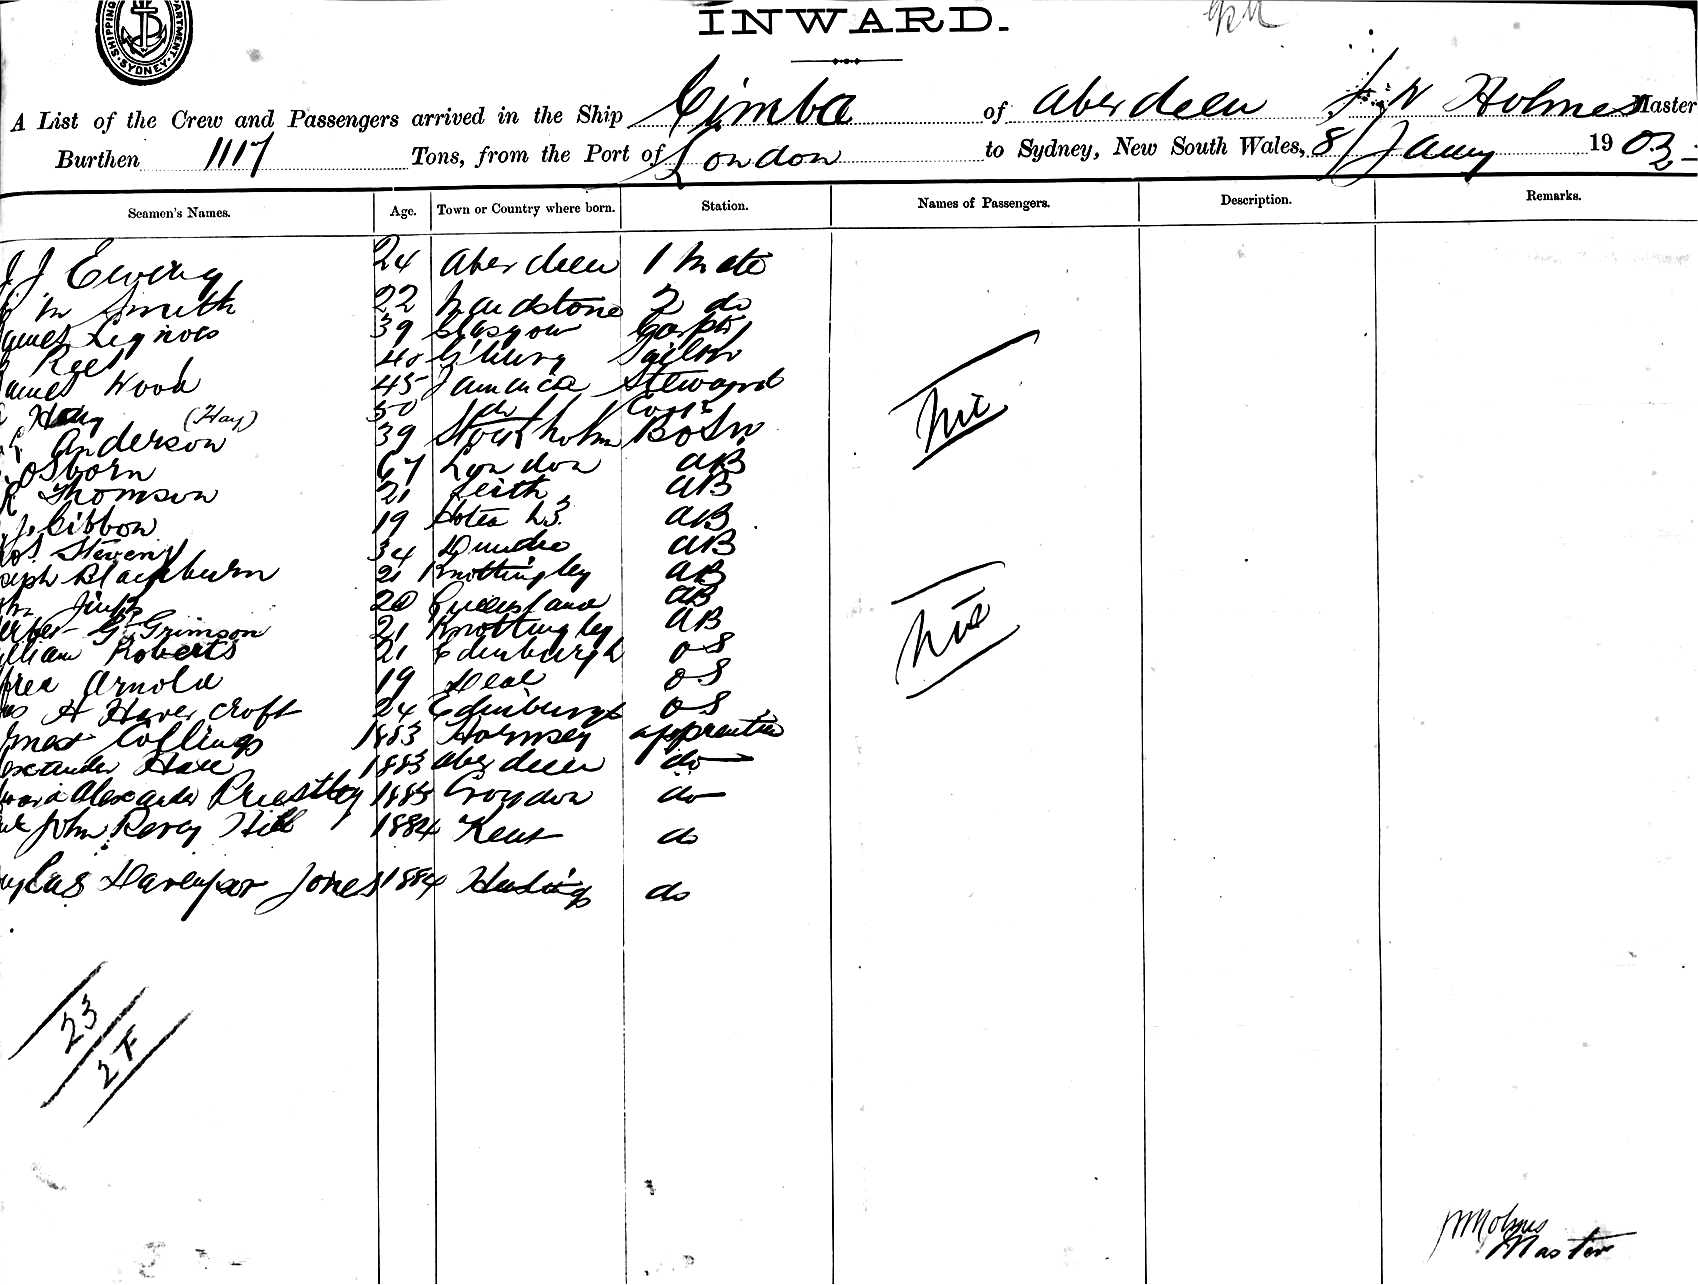 SHIPPING DEPARTMENT SYDNEY
INWARD.
A List of the Crew and Passengers arrived in the Ship Cimba of Aberdeen J. W Holmes Master
Burthen 1117 Tons, from the Port of London to Sydney, New South Wales, 8/Jany 1903
Seamen's Names. Age. Town or Country where born. Station. Names of Passengers. Description. Remarks.
J Ewing 24 Aberdeen 1 Mate
M Smith 22 Maidstone 2 do
39 Glasgow Carptr
40 Sailor
Wood 45 Jamaica Steward
Hay (Hay) 50 do Cook
Anderson 39 Stockholm Bosn
Osborn 67 London AB
Thomson 21 Leith AB
J. Gibbon 19 AB
Steven 34 Dundee AB
Blackburn 21 Knottingley AB
20 Queensland AB
G Grimson 21 Knottingley AB
Roberts 21 Edinburgh OS
Arnold 19 Deal OS
H Havercroft 24 Edinburgh OS
Collings 1883 Hornsey apprentice
1883 Aberdeen do
Alexander Priestley 1883 Croydon do
John Percy Hill 1884 Kent do
Davenpor Jones 1884 Hastings do
Nil
Nil
23
27
Holmes
Master